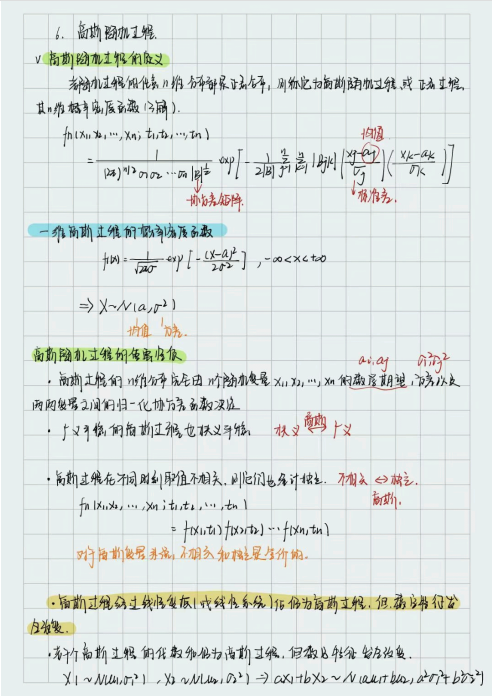 6. 高斯随机过程.
∨ 高斯随机过程的定义
若随机过程的任意n维分布都是正态分布, 则称它为高斯随机过程或正态过程.
其n维概率密度函数(了解).
fn(x1,x2,…,xn; t1,t2,…,tn)
均值
= 1/((2π)^{n/2} σ1σ2…σn |B|^{1/2}) exp[-1/(2|B|) Σ_{j=1}^{n} Σ_{k=1}^{n} |B|jk ((xj-aj)/σj)((xk-ak)/σk)]
协方差矩阵. 标准差.
一维高斯过程的概率密度函数
f(x)= 1/(√2πσ) exp[-(x-a)²/2σ²] , -∞<x<+∞
⇒ X~N(a,σ²)
均值 方差.
高斯随机过程的性质
ai,aj σi²σj²
· 高斯过程的n维分布完全由n个随机变量x1,x2,…,xn的数学期望,方差以及
两两变量之间的归一化协方差函数决定
· 广义平稳的高斯过程也狭义平稳 狭义 ⟷ 广义
高斯
· 高斯过程在不同时刻取值不相关,则它们也统计独立. 不相关 ⇔ 独立.
高斯.
fn(x1,x2,…,xn; t1,t2,…,tn)
= f(x1,t1) f(x2,t2) … f(xn,tn)
对于高斯变量来说, 不相关和独立是等价的.
· 高斯过程经过线性变换(或线性系统)后仍为高斯过程, 但数字特征发
生改变.
· 若干个高斯过程的代数和仍为高斯过程, 但数字特征发生改变.
X1~N(u1,σ1²) , X2~N(u2,σ2²) ⇒ aX1+bX2~N(au1+bu2, a²σ1²+b²σ2²)